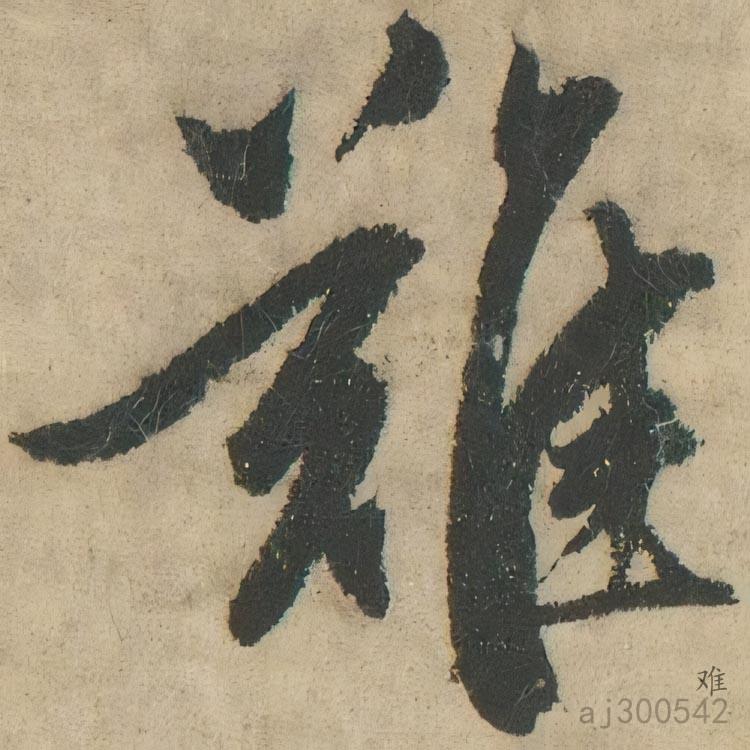 難
难
aj300542